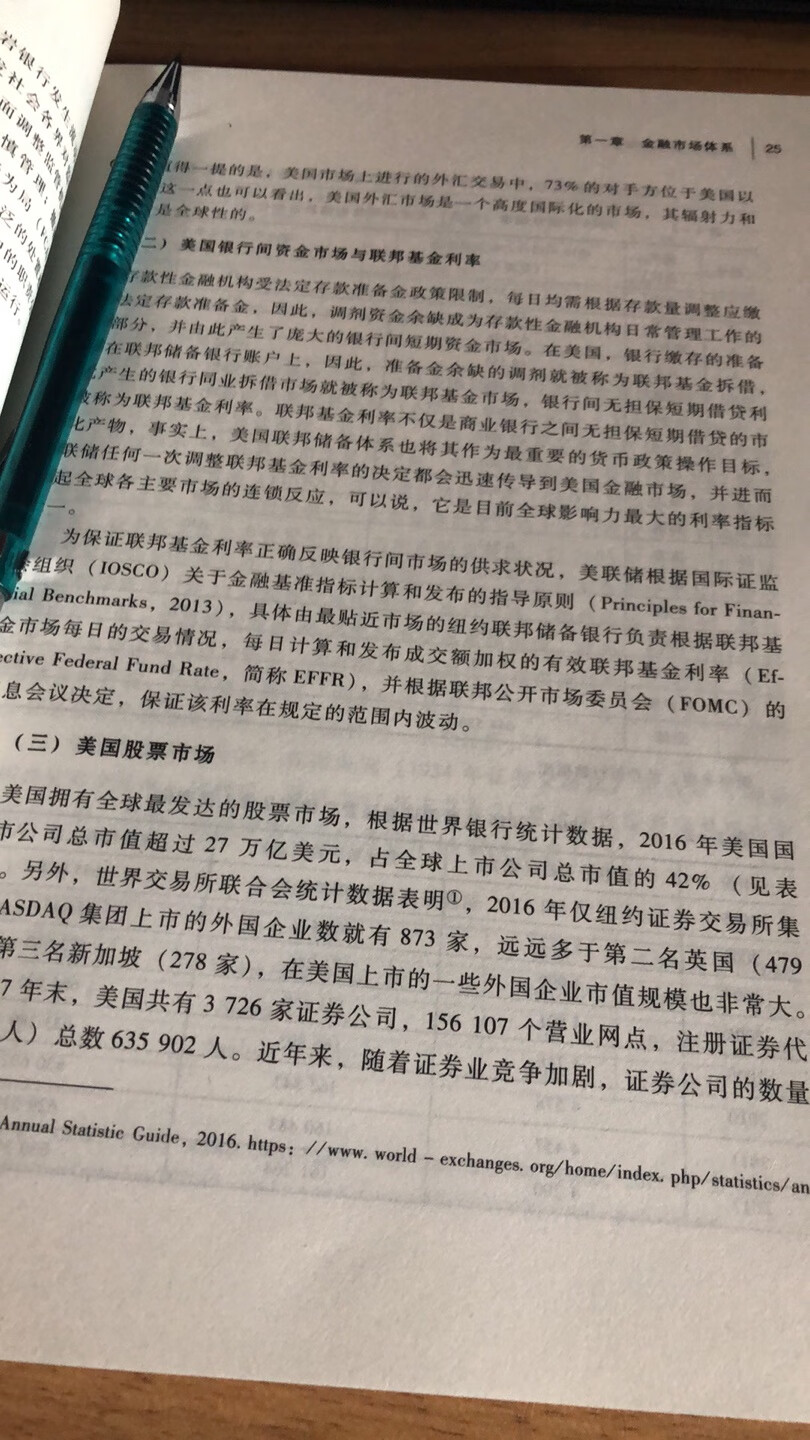 第一章 金融市场体系 25
得一提的是，美国市场上进行的外汇交易中，73%的对手方位于美国以
这一点也可以看出，美国外汇市场是一个高度国际化的市场，其辐射力和
是全球性的。
二）美国银行间资金市场与联邦基金利率
存款性金融机构受法定存款准备金政策限制，每日均需根据存款量调整应缴
法定存款准备金，因此，调剂资金余缺成为存款性金融机构日常管理工作的
部分，并由此产生了庞大的银行间短期资金市场。在美国，银行缴存的准备
在联邦储备银行账户上，因此，准备金余缺的调剂就被称为联邦基金拆借，
产生的银行同业拆借市场就被称为联邦基金市场，银行间无担保短期借贷利
被称为联邦基金利率。联邦基金利率不仅是商业银行之间无担保短期借贷的市
化产物，事实上，美国联邦储备体系也将其作为最重要的货币政策操作目标，
联储任何一次调整联邦基金利率的决定都会迅速传导到美国金融市场，并进而
起全球各主要市场的连锁反应，可以说，它是目前全球影响力最大的利率指标
一。
为保证联邦基金利率正确反映银行间市场的供求状况，美联储根据国际证监
会组织（IOSCO）关于金融基准指标计算和发布的指导原则（Principles for Finan-
ial Benchmarks，2013），具体由最贴近市场的纽约联邦储备银行负责根据联邦基
金市场每日的交易情况，每日计算和发布成交额加权的有效联邦基金利率（Ef-
ective Federal Fund Rate，简称 EFFR），并根据联邦公开市场委员会（FOMC）的
息会议决定，保证该利率在规定的范围内波动。
（三）美国股票市场
美国拥有全球最发达的股票市场，根据世界银行统计数据，2016 年美国国
市公司总市值超过 27 万亿美元，占全球上市公司总市值的 42%（见表
。另外，世界交易所联合会统计数据表明①，2016 年仅纽约证券交易所集
ASDAQ 集团上市的外国企业数就有 873 家，远远多于第二名英国（479
第三名新加坡（278 家），在美国上市的一些外国企业市值规模也非常大。
7 年末，美国共有 3 726 家证券公司，156 107 个营业网点，注册证券代
人）总数 635 902 人。近年来，随着证券业竞争加剧，证券公司的数量
Annual Statistic Guide，2016. https：//www. world – exchanges. org/home/index. php/statistics/an